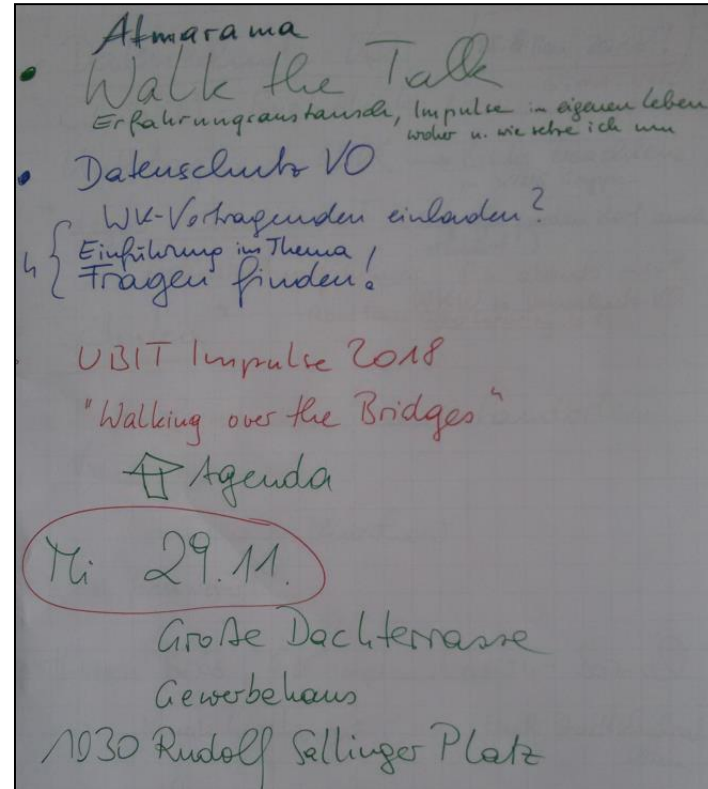 Atmarama
• Walk the Talk
Erfahrungsaustausch, Impulse im eigenen Leben
woher u. wie setze ich um
• Datenschutz VO
WK-Vortragenden einladen?
Einführung ins Thema
Fragen finden!
UBIT Impulse 2018
"Walking over the Bridges"
Agenda
Mi 29.11.
Große Dachterrasse
Gewerbehaus
1030 Rudolf Sallinger Platz